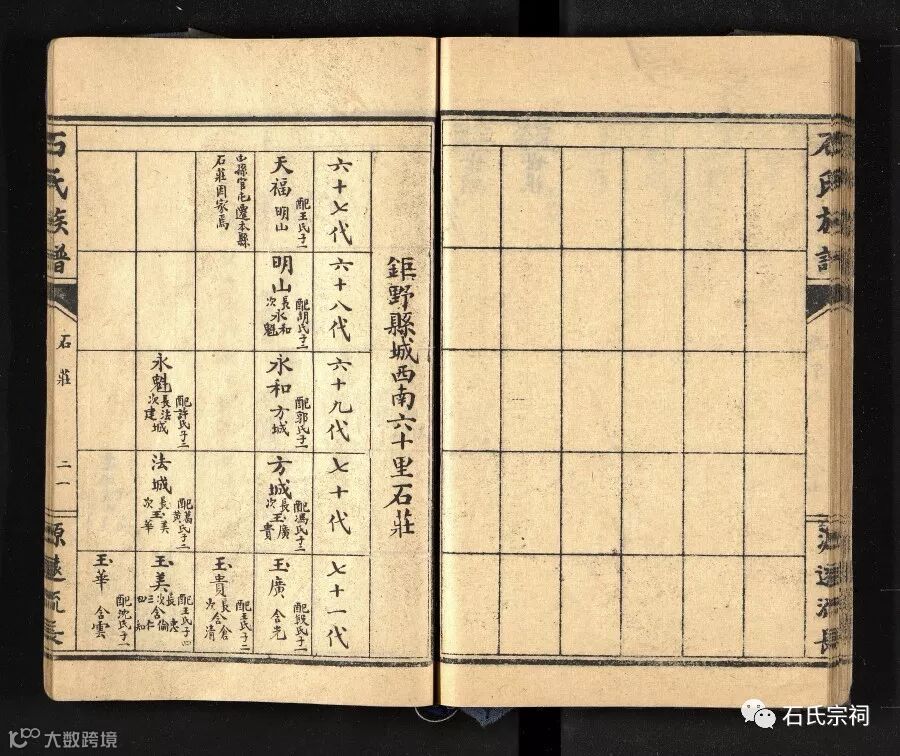 石氏族譜
鉅野縣城西南六十里石莊
六十七代
天福
配王氏子一
明山
石莊因家焉
六十八代
明山
配胡氏子二
長永和
次永魁
六十九代
永和
配郭氏子一
方城
永魁
配許氏子二
長法城
次建
七十代
方城
配馮氏子二
長玉廣
次貴
法城
配葛氏子二
黄
長玉美
次華
七十一代
玉廣
配段氏子一
含光
玉貴
配王氏子二
長含倉
次清
玉美
配王氏子四
長忠
次含倫
三仁
四知
玉華
配沈氏子一
含雲
石氏族譜
石莊
二一
源遠流長
石氏宗祠
大数跨境